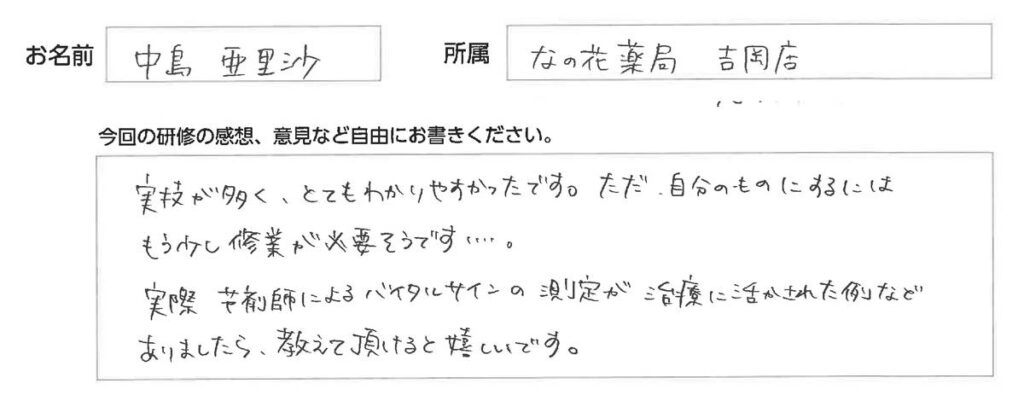 お名前 中島 亜里沙 所属 なの花薬局 吉岡店
今回の研修の感想、意見など自由にお書きください。
実技が多く、とてもわかりやすかったです。ただ、自分のものにするには
もう少し修業が必要そうです....。
実際 薬剤師によるバイタルサインの測定が治療に活かされた例など
ありましたら、教えて頂けると嬉しいです。